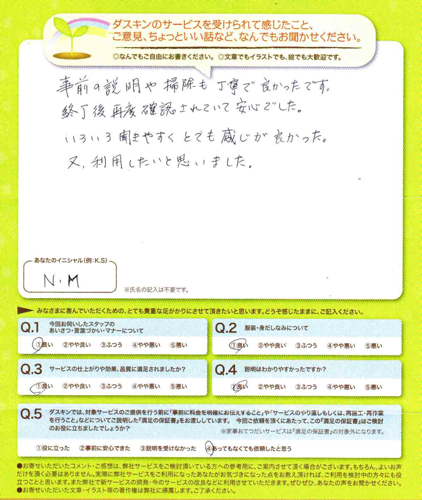 ダスキンのサービスを受けられて感じたこと、
ご意見、ちょっといい話など、なんでもお聞かせください。
◎なんでもご自由にお書きください。◎文章でもイラストでも、絵でも大歓迎です。
事前の説明や掃除も丁寧で良かったです。
終了後再度確認されていて安心でした。
いろいろ聞きやすくとても感じが良かった。
又、利用したいと思いました。
あなたのイニシャル(例:K.S)
N.M
※氏名の記入は不要です。
みなさまに喜んでいただくための、とても貴重な足がかりにさせて頂きたいと思います。どうぞ感じたままに、ご記入ください。
Q.1 今回お伺いしたスタッフの
あいさつ・言葉づかい・マナーについて
①良い ②やや良い ③ふつう ④やや悪い ⑤悪い
Q.2 服装・身だしなみについて
①良い ②やや良い ③ふつう ④やや悪い ⑤悪い
Q.3 サービスの仕上がりや効果、品質に満足されましたか?
①良い ②やや良い ③ふつう ④やや悪い ⑤悪い
Q.4 説明はわかりやすかったですか?
①良い ②やや良い ③ふつう ④やや悪い ⑤悪い
Q.5 ダスキンでは、対象サービスのご提供を行う前に「事前に料金を明確にお伝えすること」や「サービスのやり直しもしくは、再施工・再作業
を行うこと」などについてご説明した「満足の保証書」をお渡ししています。 今回ご依頼を頂くにあたって、この「満足の保証書」はご検討
のお役に立ちましたでしょうか?
※家事おてつだいサービスは「満足の保証書」の対象外になります。
①役に立った ②事前に安心できた ③説明を受けなかった ④あってもなくても依頼したと思う
●お寄せいただいたコメント・ご感想は、弊社サービスをご検討頂いている方への参考用に、ご案内させて頂く場合がございます。もちろん、よいお声
だけを頂く必要はありません。実際に弊社サービスをご利用になったあなたがお気づきになった点をお教え頂ければ、ご利用を検討中の方々にも役
立つことと思います。また弊社で新サービスの開発・今のサービスの改良などに利用させていただきます。ぜひぜひ、あなたの声をお聞かせください。
●お寄せいただいた文章・イラスト等の著作権は弊社に帰属します。ご了承ください。